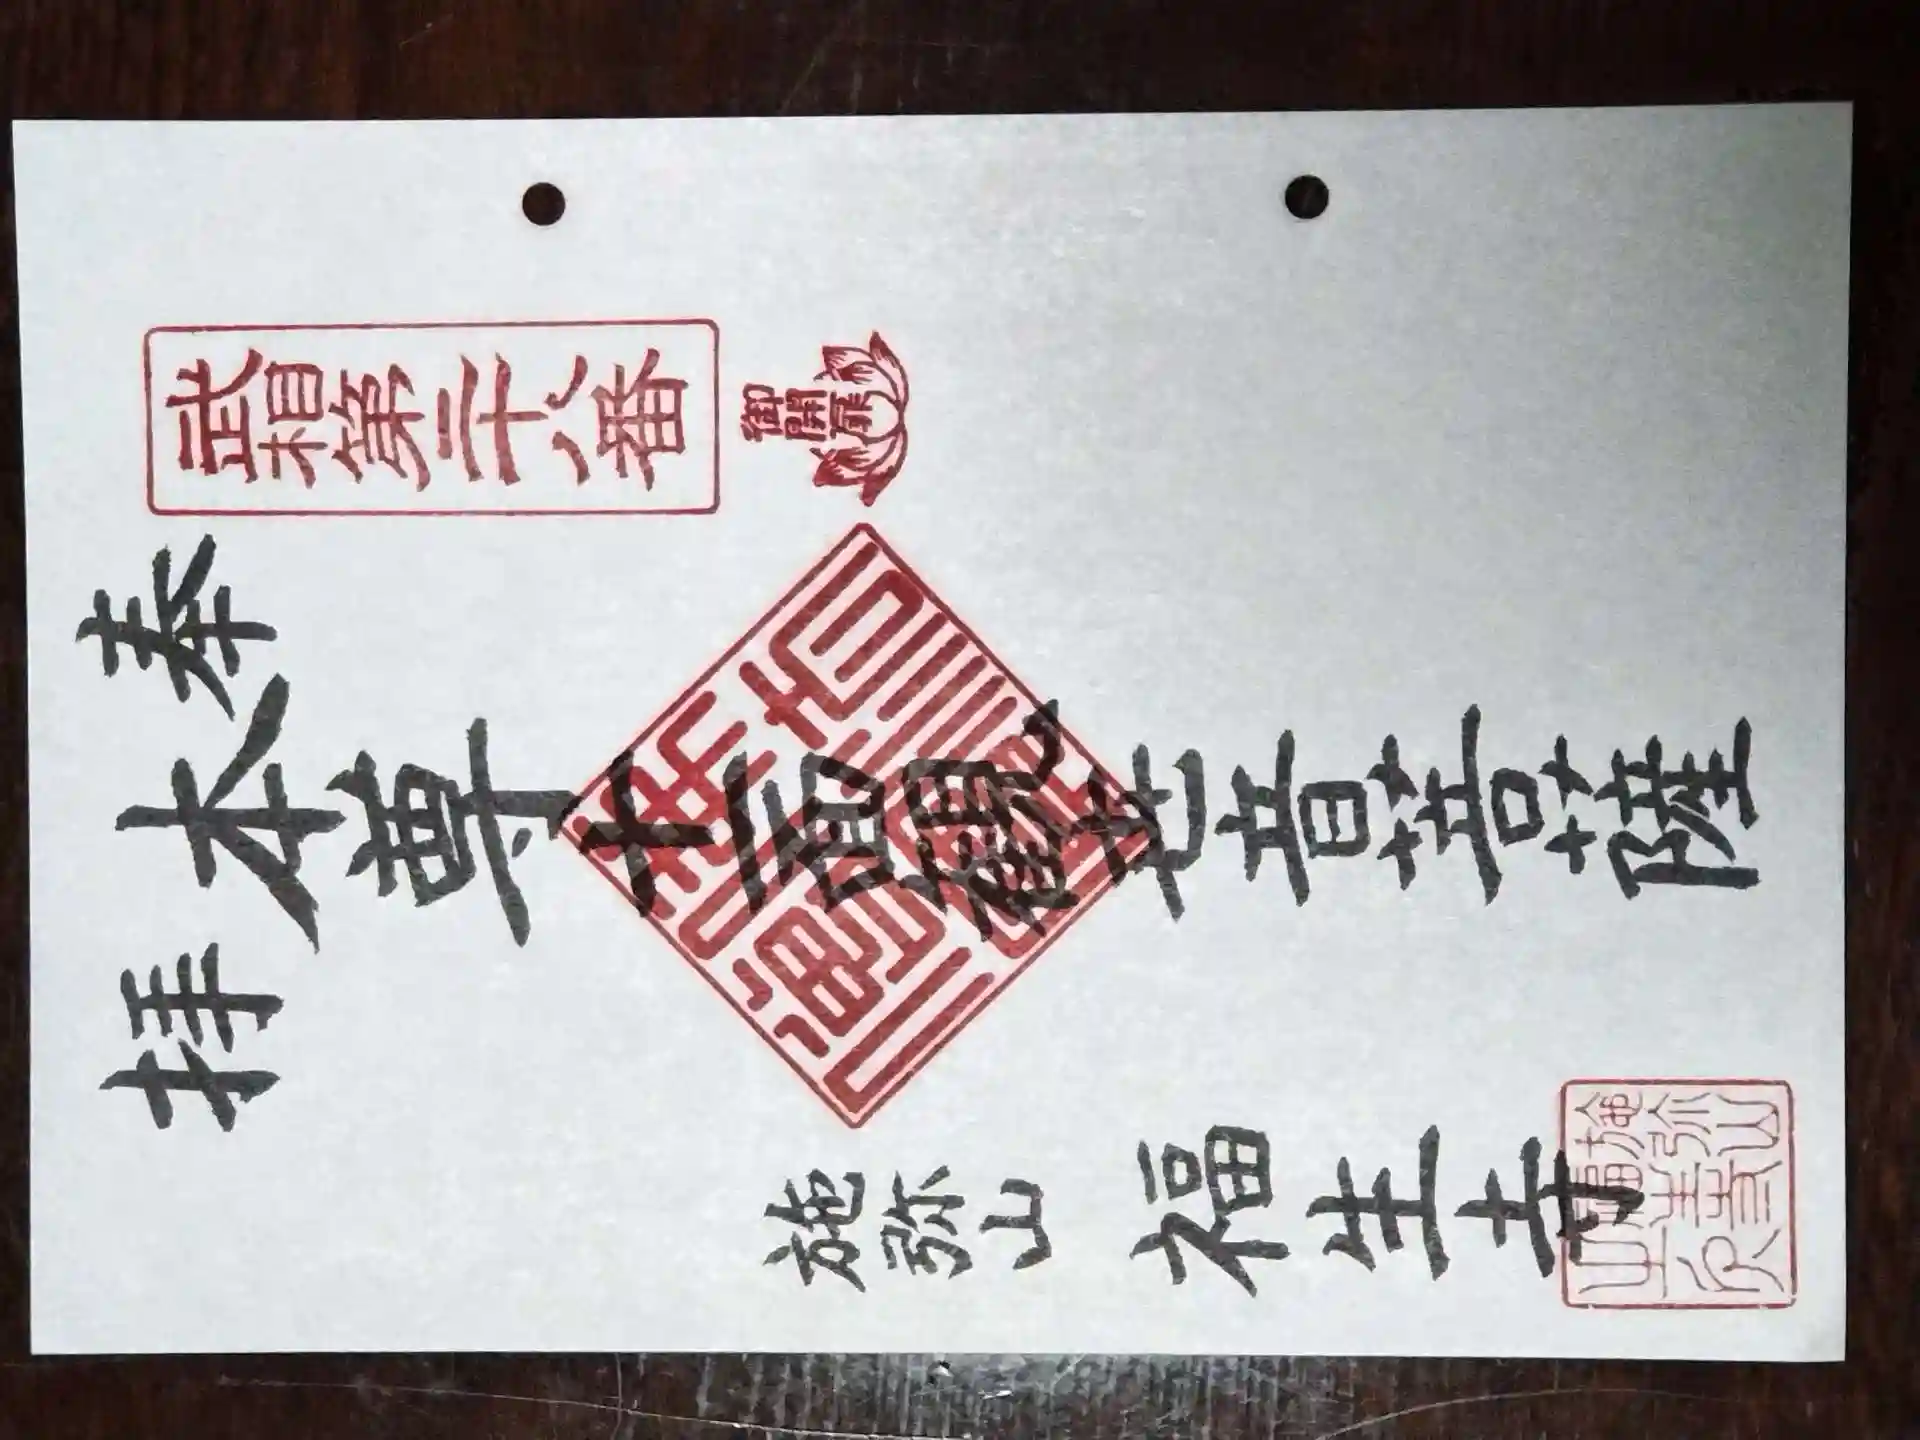 武相第二十八番
御開扉
奉拝
本尊十一面観世音菩薩
施弥山 福生寺
施弥山
福生寺
之印